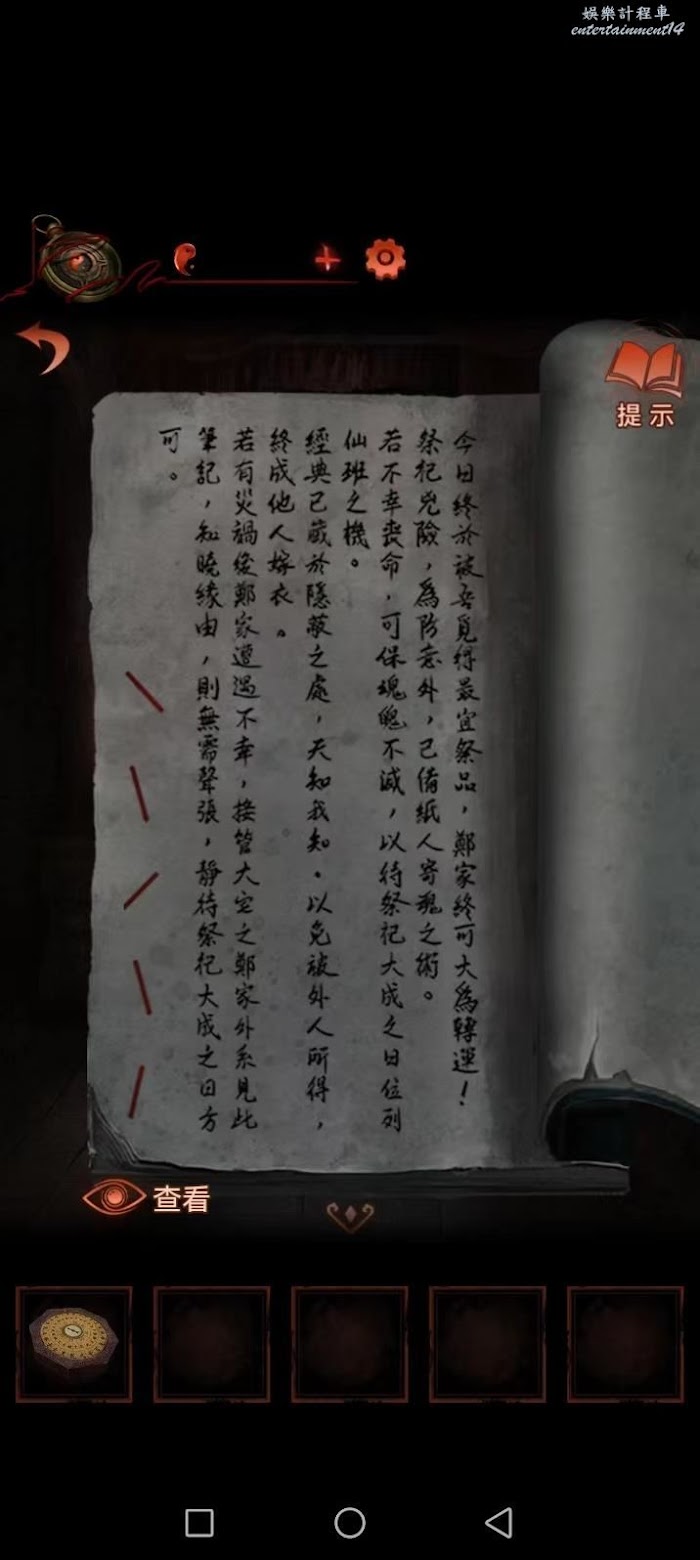 娛樂計程車
entertainment14
提示
今日終於被吾覓得最宜祭品，鄭家終可大為轉運！
祭祀兇險，為防意外，已備紙人寄魂之術。
若不幸喪命，可保魂魄不滅，以待祭祀大成之日位列
仙班之機。
經典已藏於隱蔽之處，天知我知。以免被外人所得，
終成他人嫁衣。
若有災禍後鄭家遭遇不幸，接管大宅之鄭家外系見此
筆記，知曉緣由，則無需聲張，靜待祭祀大成之日方
可。
查看